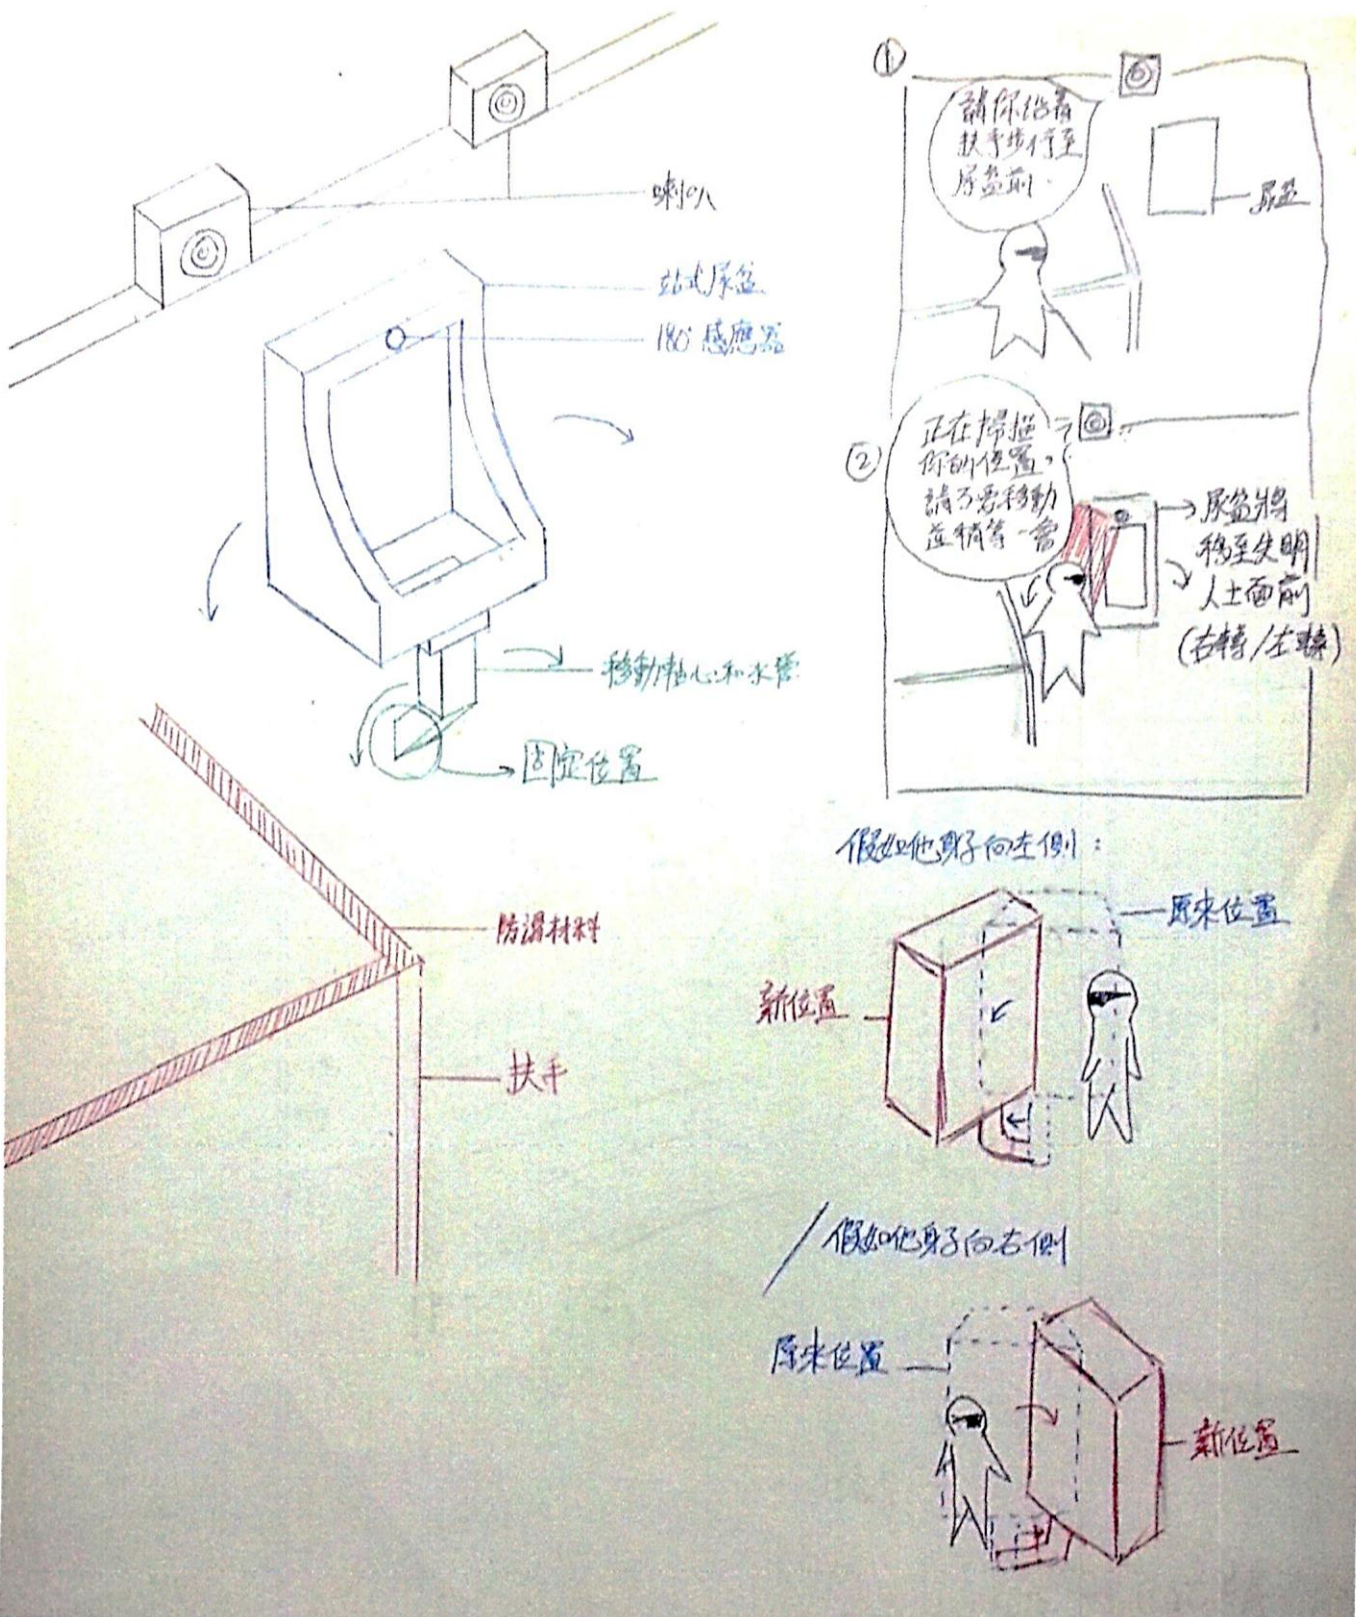 喇叭
站式尿盆
180°感應器
移動軸心和水管
固定位置
防滑材料
扶手
①
請你沿着
扶手步行至
尿盆前。
尿盆
②
正在掃描
你的位置,
請不要移動
並稍等一會
尿盆將
移至失明
人士面前
(右轉/左轉)
假如他身子向左側:
原來位置
新位置
/假如他身子向右側
原來位置
新位置